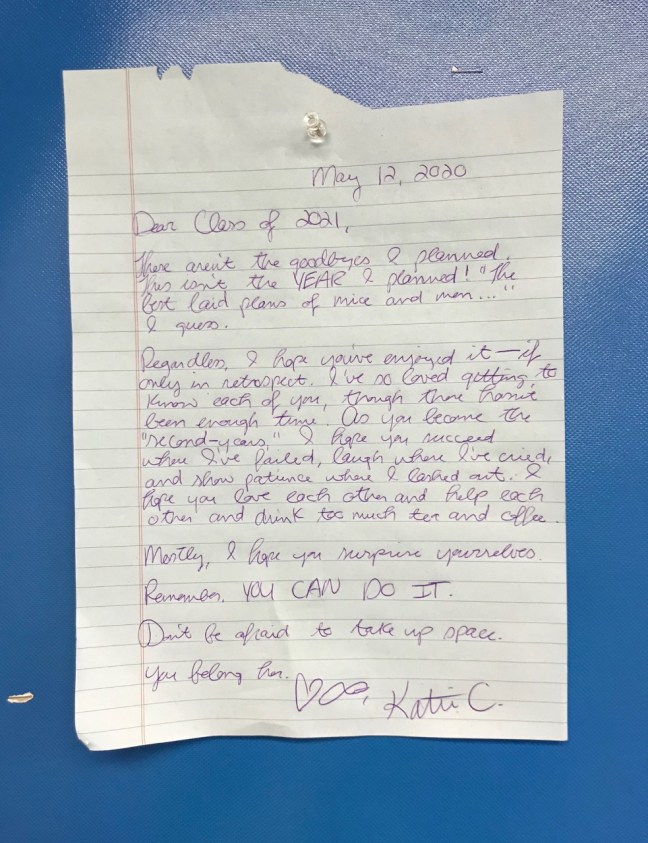 May 12, 2020
Dear Class of 2021,
These aren't the goodbyes I planned.
This isn't the YEAR I planned! "The
best laid plans of mice and men..."
I guess.
Regardless, I hope you've enjoyed it—if
only in retrospect. I've so loved getting to
know each of you, though there hasn't
been enough time. As you become the
"second-years," I hope you succeed
where I've failed, laugh where I've cried,
and show patience where I lashed out. I
hope you love each other and help each
other and drink too much tea and coffee.
Mostly, I hope you surprise yourselves.
Remember, YOU CAN DO IT.
Don't be afraid to take up space.
You belong here.
♡∞, Katie C.